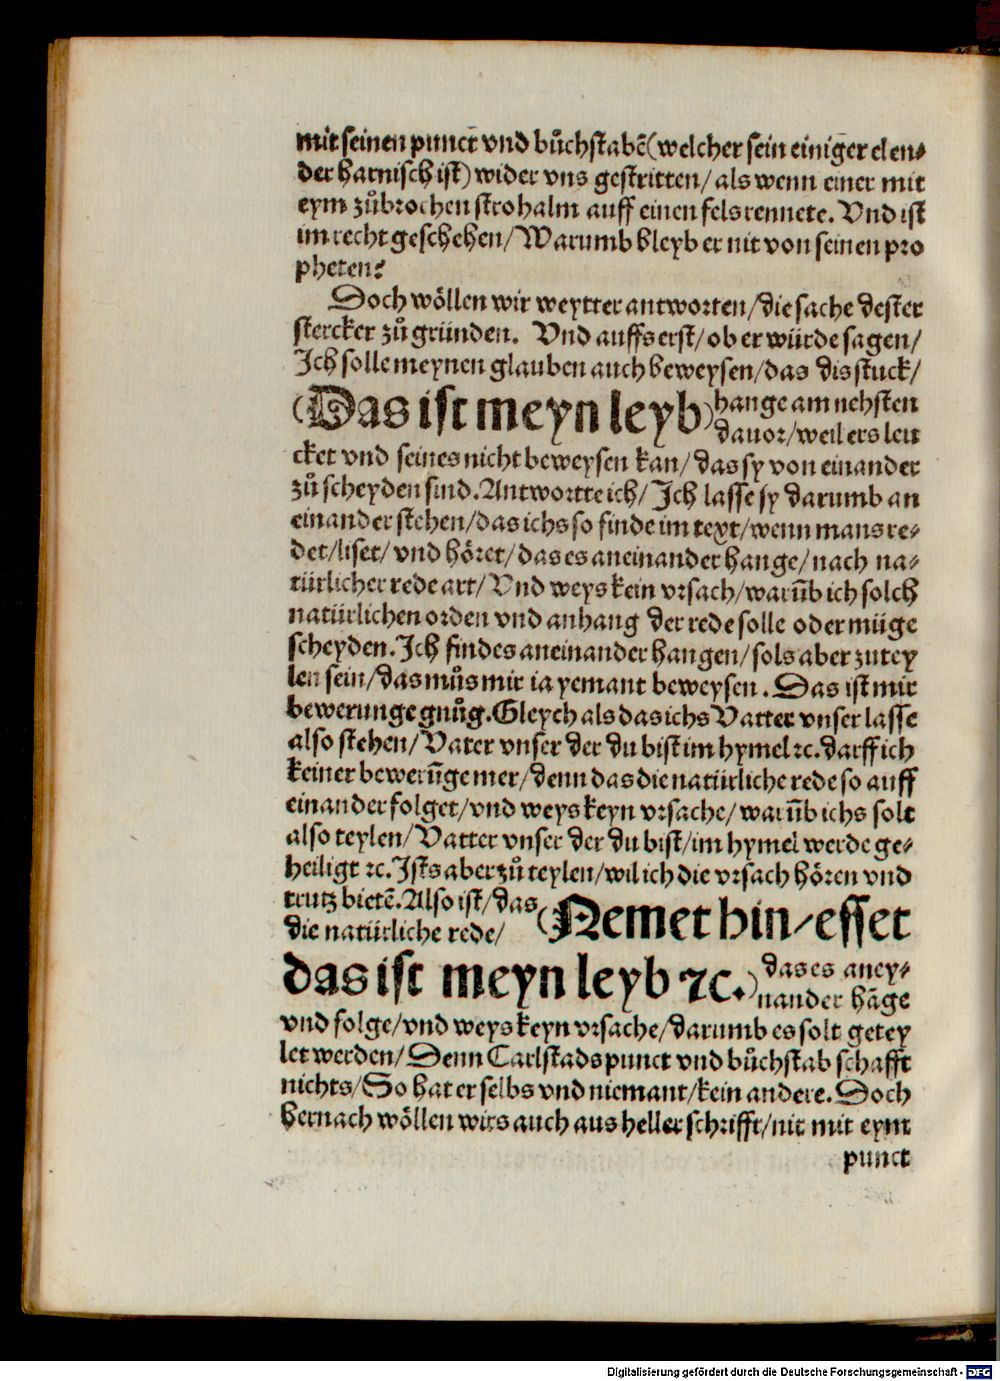 mit seinen punct vnd bůchstabē (welcher sein einiger elen⸗
der harnisch ist) wider vns gestritten/ als wenn einer mit
eym zůbrochen strohalm auff einen fels rennete. Vnd ist
im recht geschehen/ Warumb bleyb er nit von seinen pro
pheten?
Doch wöllen wir weytter antworten/ die sache dester
stercker zů gründen. Vnd auffs erst/ ob er würde sagen/
Ich solle meynen glauben auch beweysen/ das dis stuck/
(Das ist meyn leyb) hange am nehsten
dauor/ weil ers leu
cket vnd seines nicht beweysen kan/ das sy von einander
zů scheyden sind. Antwortte ich/ Ich lasse sy darumb an
einander stehen/ das ichs so finde im text/ wenn mans re⸗
det/ liset/ vnd höret/ das es aneinander hange/ nach na⸗
türlicher rede art/ Vnd weys kein vrsach/ warūb ich solch
natürlichen orden vnd anhang der rede solle oder müge
scheyden. Ich findes aneinander hangen/ sols aber zutey
len sein/ das můs mir ia yemant beweysen. Das ist mir
bewerunge gnůg. Gleych als das ichs Vatter vnser lasse
also stehen/ Vater vnser der du bist im hymel ⁊c. darff ich
keiner bewerūge mer/ denn das die natürliche rede so auff
einander folget/ vnd weys keyn vrsache/ warūb ichs solt
also teylen/ Vatter vnser der du bist/ im hymel werde ge⸗
heiligt ⁊c. Ists aber zů teylen/ wil ich die vrsach hören vnd
trutz bietē. Also ist/ das
die natürliche rede/
(Nemet hin/ esset
das ist meyn leyb ⁊c.) das es aney⸗
nander hāge
vnd folge/ vnd weys keyn vrsache/ darumb es solt getey
let werden/ Denn Carlstads punct vnd bůchstab schafft
nichts/ So hat er selbs vnd niemant/ kein andere. Doch
hernach wöllen wirs auch aus heller schrifft/ nit mit eym
punct
Digitalisierung gefördert durch die Deutsche Forschungsgemeinschaft - DFG